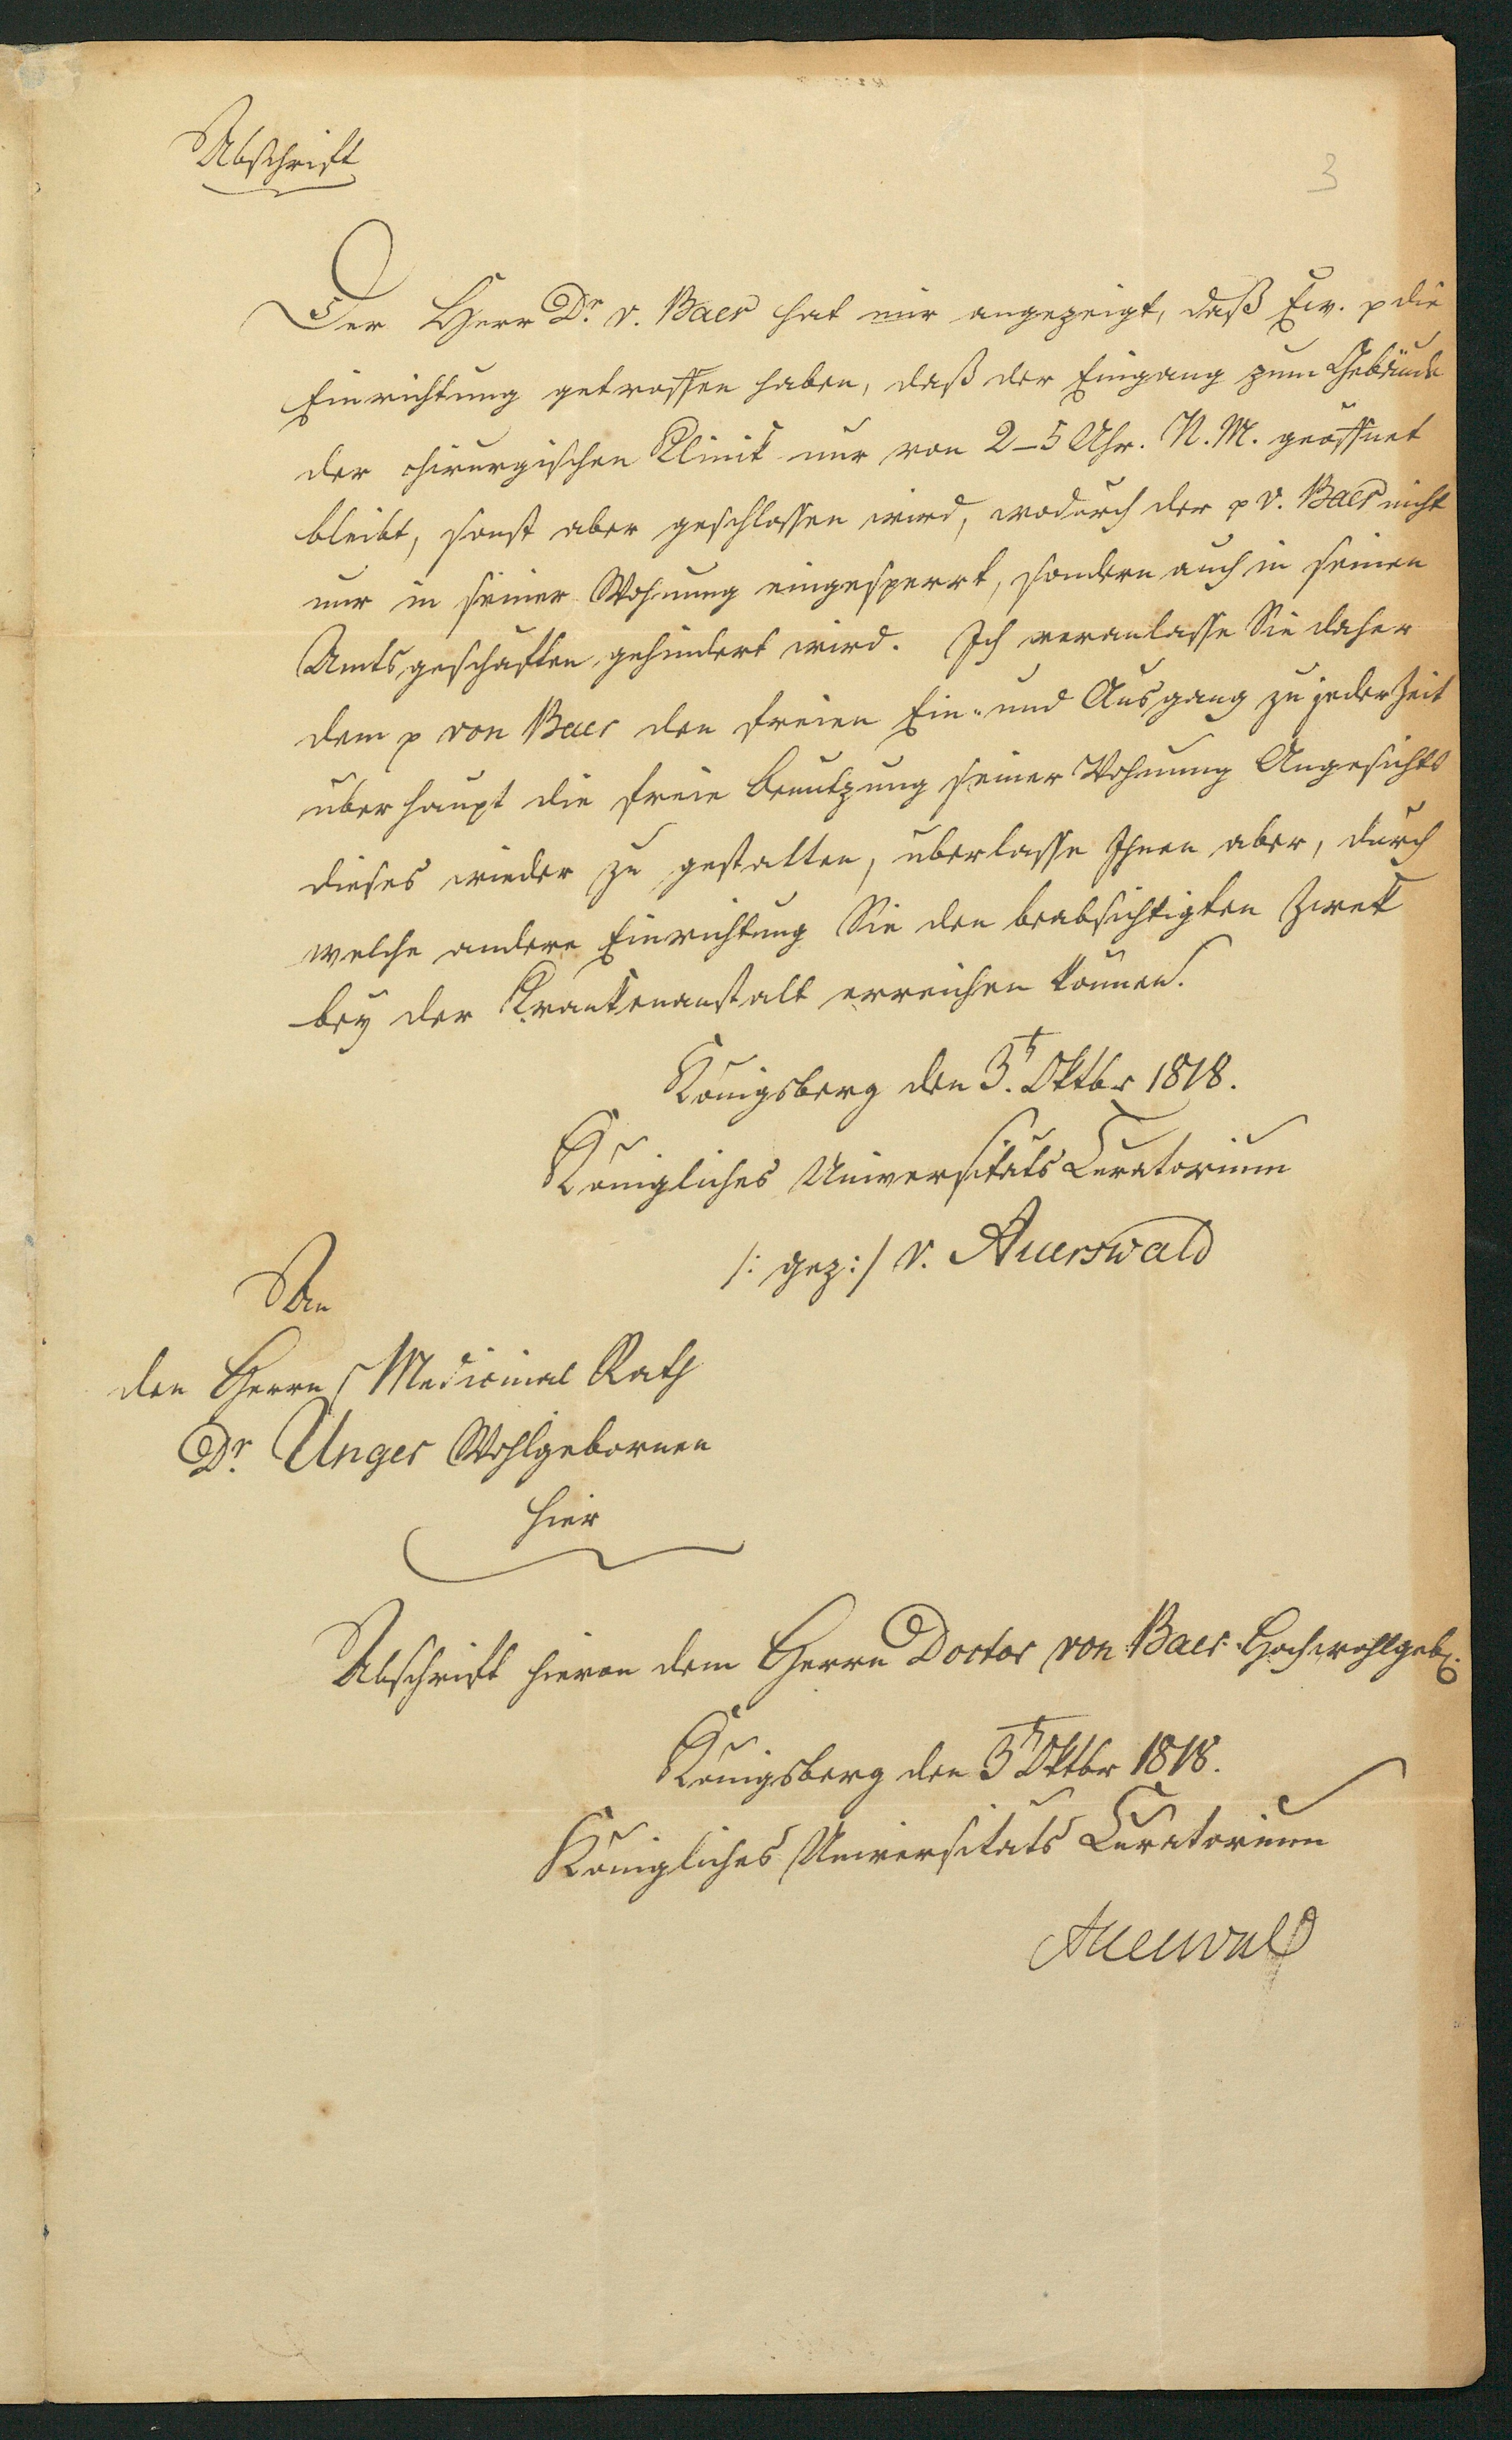 Abschrift
3
Der Herr Dr. v. Baer hat mir angezeigt, daß Ew. p die
Einrichtung getroffen haben, daß der Eingang zum Gebäude
der chirurgischen Klinik nur von 2–5 Uhr. N. M. geöffnet
bleibt, sonst aber geschlossen wird, wodurch der p v. Baer nicht
nur in seiner Wohnung eingesperrt, sondern auch in seinen
Amtsgeschäften gehindert wird. Ich veranlasse Sie daher
dem p von Baer den freien Ein- und Ausgang zu jeder Zeit
überhaupt die freie Benutzung seiner Wohnung Angesichts
dieses wieder zu gestatten, überlasse Ihnen aber, durch
welche andere Einrichtung Sie den beabsichtigten Zwek
bey der Krankenanstalt erreichen können.
Königsberg den 3t. Oktbr 1818.
Königliches Universitäts Curatorium
/: gez :/ v. Auerswald
An
den Herrn Medicinal Rath
Dr. Unger Wohlgebornen
hier
Abschrift hievon dem Herrn Doctor von Baer Hochwohlgeb.
Königsberg den 3t Oktbr 1818.
Königliches Universitäts Curatorium
Auerswald